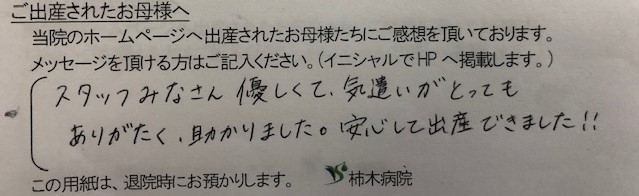 ご出産されたお母様へ
当院のホームページへ出産されたお母様たちにご感想を頂いております。
メッセージを頂ける方はご記入ください。(イニシャルでHPへ掲載します。)
スタッフみなさん優しくて、気遣いがとっても
ありがたく、助かりました。安心して出産できました!!
この用紙は、退院時にお預かりします。 柿木病院